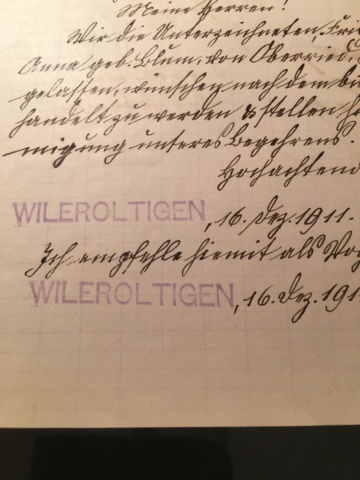 Meine Herren!
Wir die Unterzeichneten, Frie
Anna geb. Blum, von Oberried,
gelassen, wünschen nach dem
handelt zu werden & stellen
migung unseres Begehrens.
Hochachtend
WILEROLTIGEN, 16. Dez. 1911.
Ich empfehle hiemit als Vog
WILEROLTIGEN, 16. Dez. 191